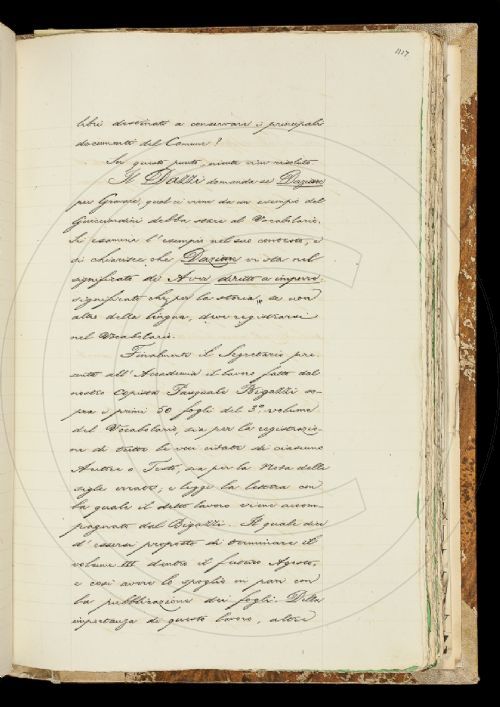 417
libri destinati a conservare i principali
documenti del Comune?
In questo punto, niente vien risoluto.
Il Dazzi domanda se Dazione
per Gravezza, qual ci viene da un esempio del
Guicciardini debba stare al Vocabolario.
Si esamina l'esempio nel suo contesto, e
si chiarisce che Dazione vi sta nel
significato di Aver diretto a imperio,
significato che per la storia, se non
altro della lingua, deve registrarsi
nel Vocabolario.
Finalmente il Segretario pre-
sentò all'Accademia il lavoro fatto dal
nostro copista Pasquale Bigazzi so-
pra i primi 50 fogli del 3.º volume
del Vocabolario, sia per la registrazio-
ne di tutte le voci citate di ciascuno
Autore o Testo, sia per la Nota delle
sigle errate, e legge la lettera con
la quale il detto lavoro viene accom-
pagnato dal Bigazzi. Il quale dice
d'essersi proposto di terminare il
volume III dentro il futuro Agosto,
e così avere lo spoglio in pari con
la pubblicazione dei fogli. Della
importanza di questo lavoro, altre